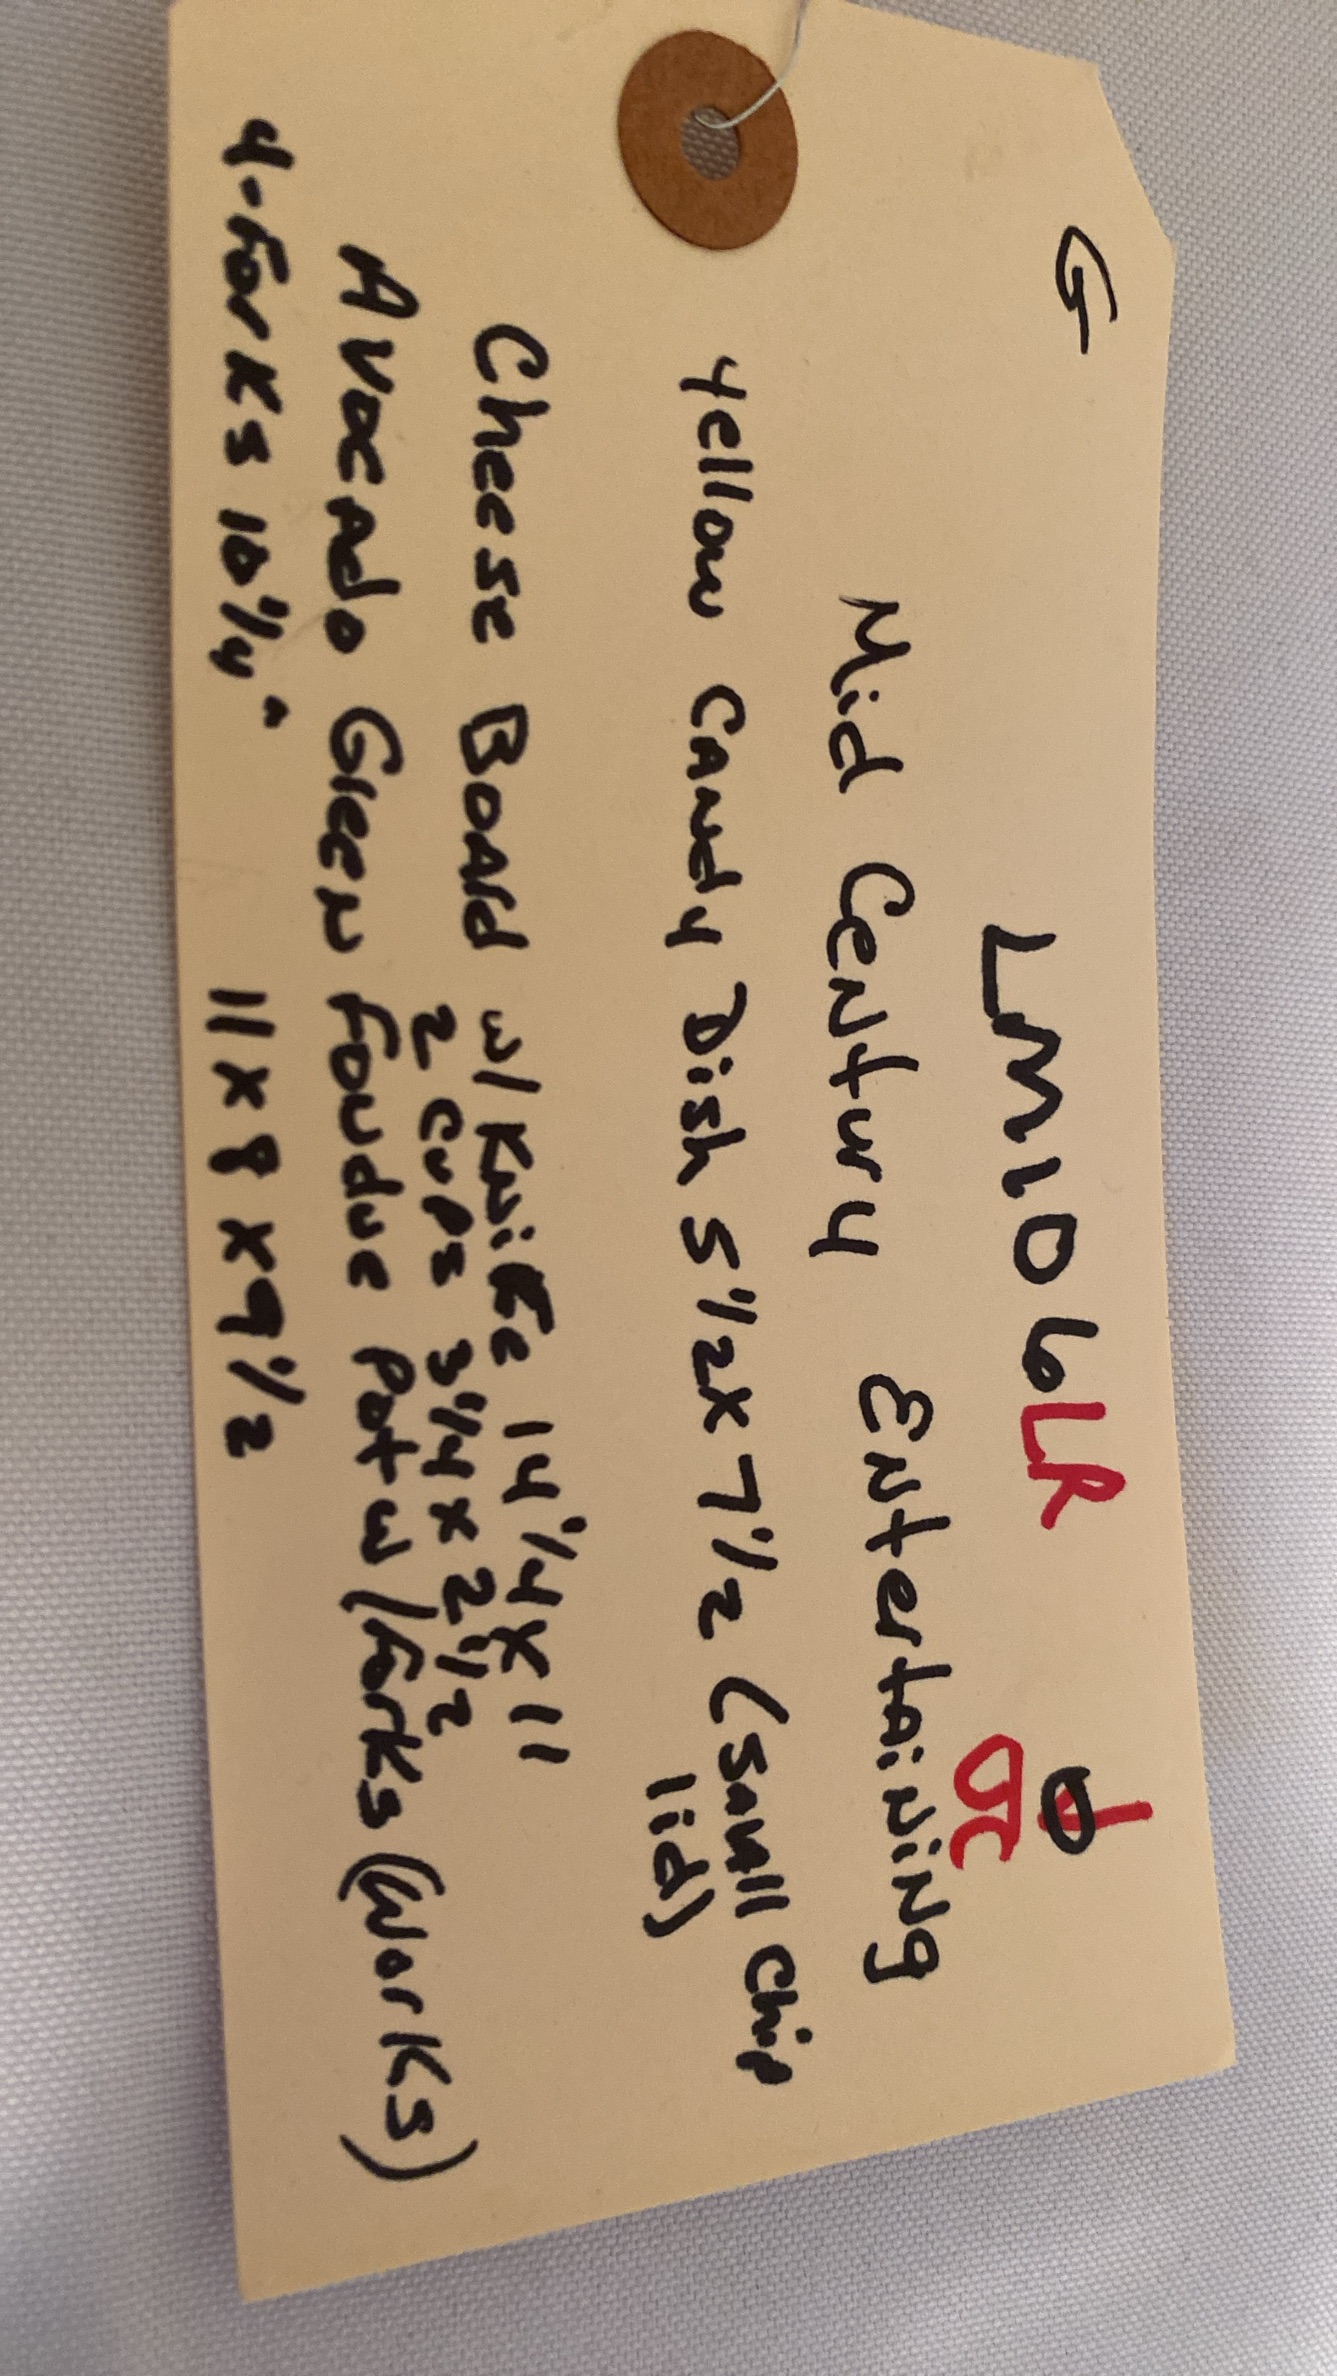 G
LM106LR
JC
Mid Century Entertaining
Yellow Candy Dish 5 1/2 x 7 1/2 (small chip
lid)
Cheese Board w/ Knife 14 1/4 x 11
2 cups 3 1/4 x 2 1/2
Avocado Green Fondue Pot w/ Forks (Works)
4-Forks 10 1/4" 11 x 8 x 9 1/2